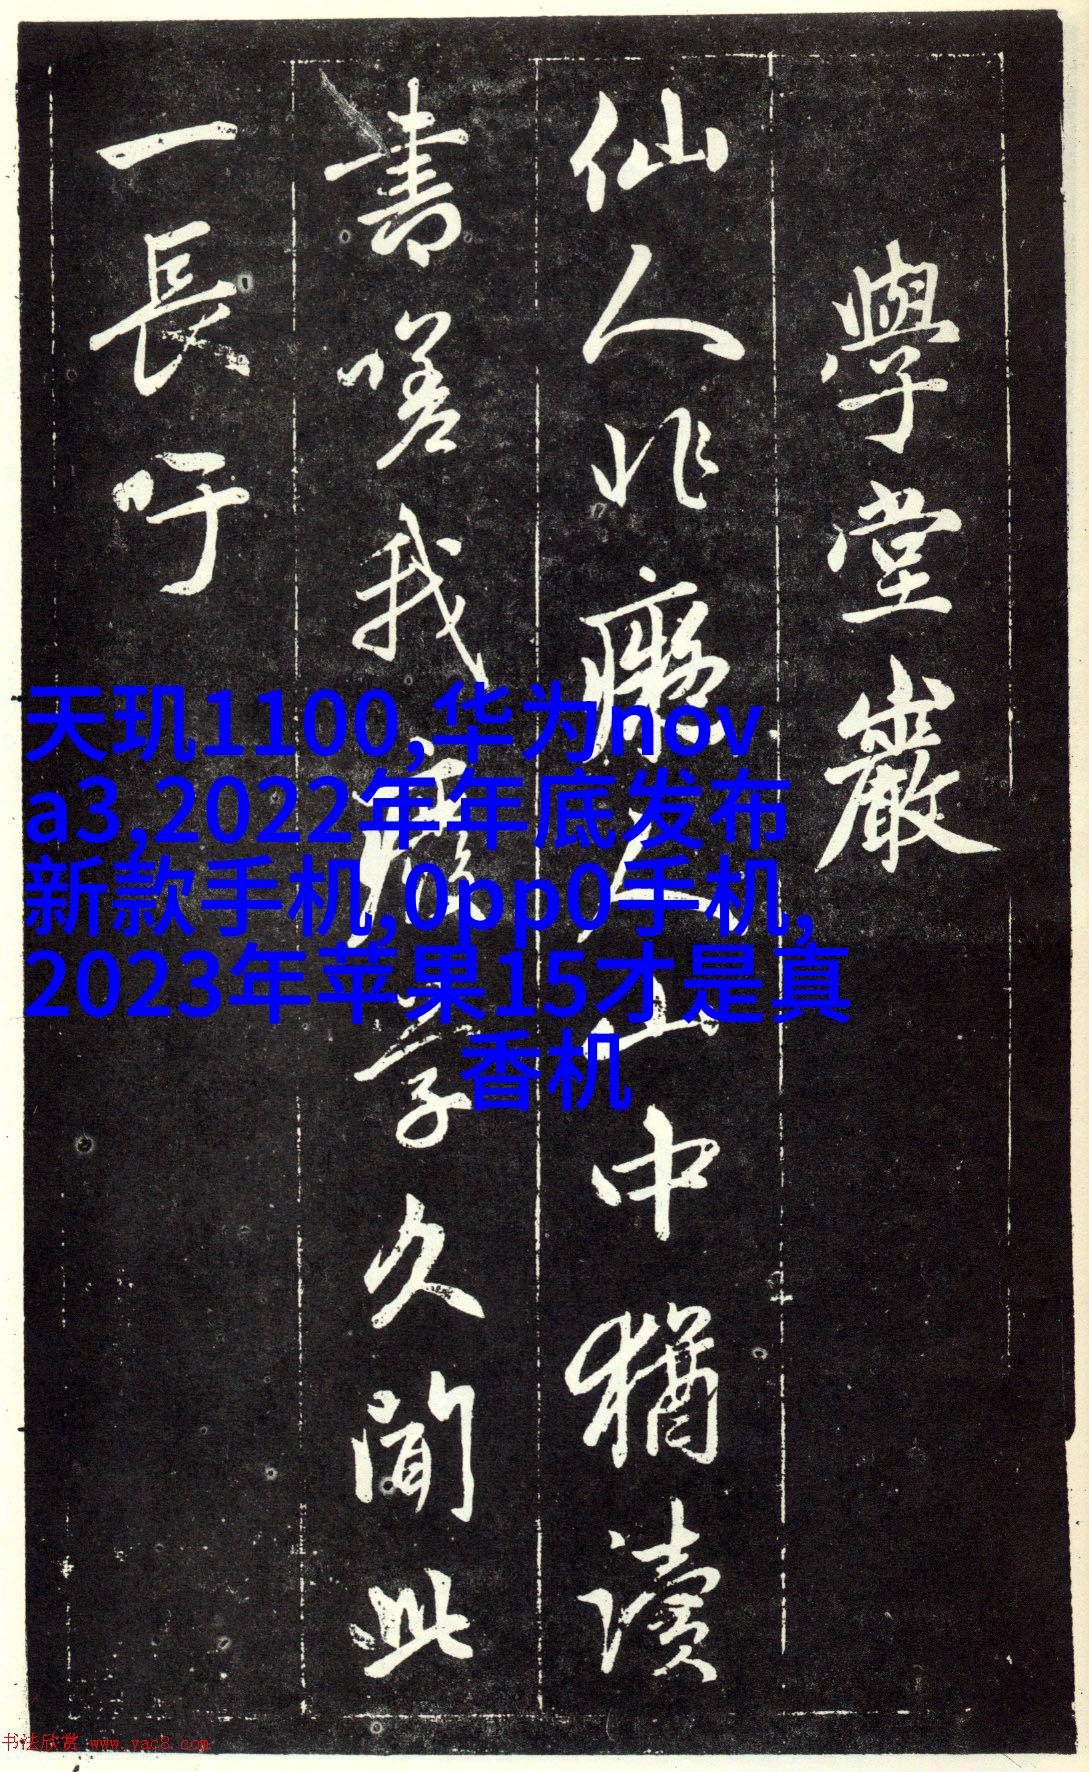 學堂巖
仙人非癡人山中猶讀
書嗟我廢學久聞此
一長吁
天玑1100,华为nov
a3,2022年年底发布
新款手机,0pp0手机,
2023年苹果15才是真
香机
书法欣赏 www.yac8.com